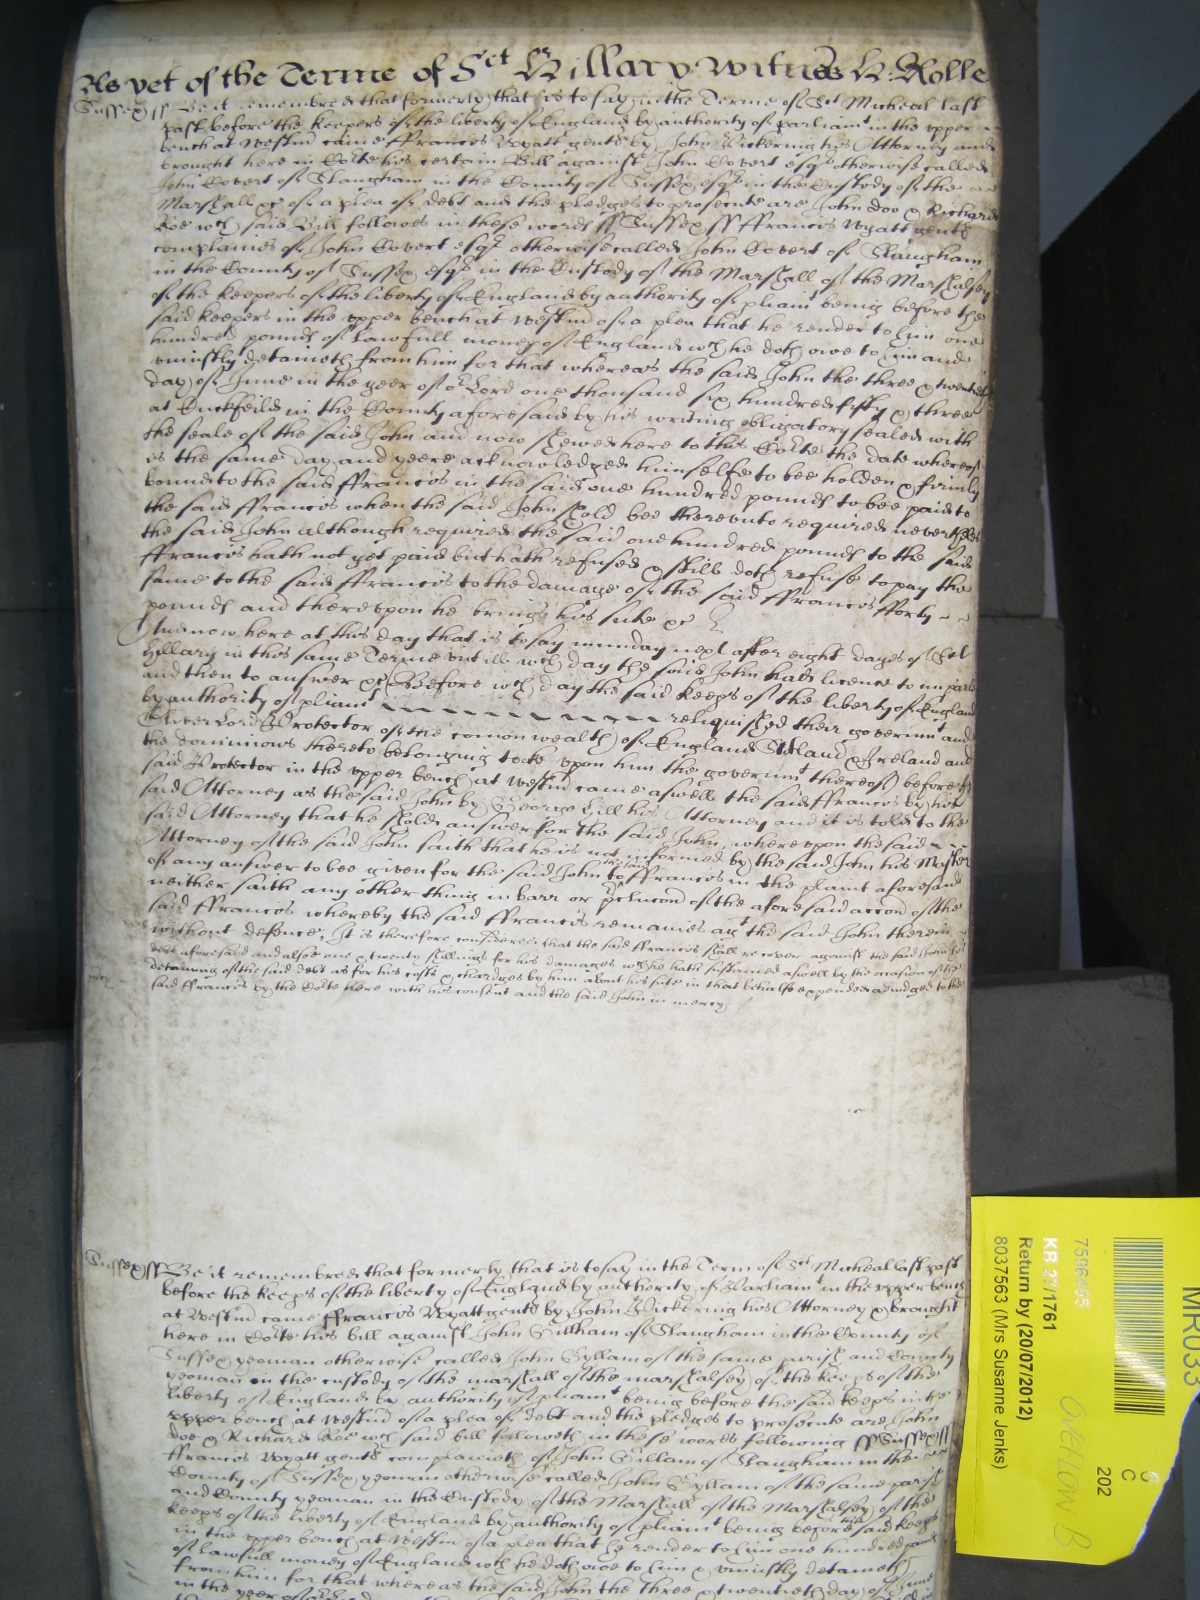 As yet of the Terme of Sct Hillary Witnes H: Rolle
Sussex ss Be it remembred that formerly that is to say in the Terme of Sct Micheal last
past before the keepers of the liberty of England by authority of parliamt in the upper
bench at Westm̄ came ffrancis Wyatt gent by John Pickering his Attorney and
brought here in Co'te his certain Bill against John Covert esqr otherwise called
John Covert of Slaugham in the County of Sussex esqr in the Custody of the
Marshall &c of a plea of debt and the pledges to prosecute are John Doo & Richard
Roe wch said Bill followes in these words ss Sussex ss ffrancis Wyatt gent
complaines of John Covert esqr otherwise called John Covert of Slaugham
in the County of Sussex esqr in the Custody of the Marshall of the Marshalsey
of the keepers of the liberty of England by authority of pliamt being before the
said keepers in the upper bench at Westm̄ of a plea that he render to him one
hundred pounds of lawfull money of England wch he doth owe to him and
uniustly detaineth from him for that whereas the said John the three & twentieth
day of June in the yeer of or Lord one thousand six hundred fifty & three
at Cuckfeild in the County aforesaid by his writing obligatory sealed with
the seale of the said John and now shewed here to this Co'te the date whereof
is the same day and yeere acknowledged himselfe to bee holden & firmly
bound to the said ffrancis in the said one hundred pounds to bee paid to
the said ffrancis when the said John shold bee thereunto required neverthelesse
the said John although required the said one hundred pounds to the said
ffrancis hath not yet paid but hath refused & still doth refuse to pay the
same to the said ffrancis to the damage of the said ffrancis fforty
pounds and thereupon he brings his sute &c
And now here at this day that is to say munday next after eight dayes of Sct
Hillary in this same Terme untill wch day the said John hath licence to imparle
and then to answer &c Before wch day the said keeps of the liberty of England
by authority of pliamt reliquished their governmt and
Oliver Lord Protector of the comon wealth of England Scotland & Ireland and
the dominions thereto belonging tooke upon him the governmt thereof before the
said Protector in the upper bench at Westm̄ came aswell the said ffrancis by his
said Attorney as the said John by George Hill his Attorney and it is told to the
said Attorney that he shold answer for the said John, whereupon the said
Attorney of the said John saith that he is not informed by the said John his Master
of any answer to bee given for the said John to the said ffrancis in the plaint aforesaid
neither saith any other thing in barr or pclucon of the aforesaid accon of the
said ffrancis whereby the said ffrancis remaines agt the said John therein
without defence, It is therefore considered that the said ffrancis shall recover against the said John his
debt aforesaid and alsoe one & twenty shillings for his damages wch he hath sustained aswell by the occasion of the
detaining of the said debt as for his costs & chardges by him about his sute in that behalfe expended adiudged to the
said ffrancis by the Co'te here with his consent and the said John in mercy
Sussex ss Be it remembred that formerly that is to say in the Term of Sct Micheal last past
before the keeps of the liberty of England by authority of Parliamt in the upper bench
at Westm̄ came ffrancis Wyatt gent by John Pickering his Attorney & brought
here in Co'te his bill against John Gillham of Slaugham in the County of
Sussex yeoman otherwise called John Gyllam of the same parish and County
yeoman in the custody of the marshall of the marshalsey of the keeps of the
liberty of England by authority of pliamt being before the said keeps in the
upper bench at Westm̄ of a plea of debt and the pledges to prosecute are John
Doe & Richard Roe wch said bill followeth in these words following ss Sussex ss
ffrancis Wyatt gent complaineth of John Gillam of Slaugham in the
County of Sussex yeoman otherwise called John Gyllam of the same parish
and County yeoman in the Custody of the Marshall of the Marshalsey of the
keeps of the liberty of England by authority of pliamt being before the said keeps
in the upper bench at Westm̄ of a plea that he render to him one hundred pounds
of lawfull money of England wch he doth owe to him & uniustly detaineth
from him for that whereas the said John the three & twentieth day of June
in the yeer of
MR033
7596465
KB 27/1761
Return by (20/07/2012)
8037563 (Mrs Susanne Jenks)
C
202
OVERFLOW B